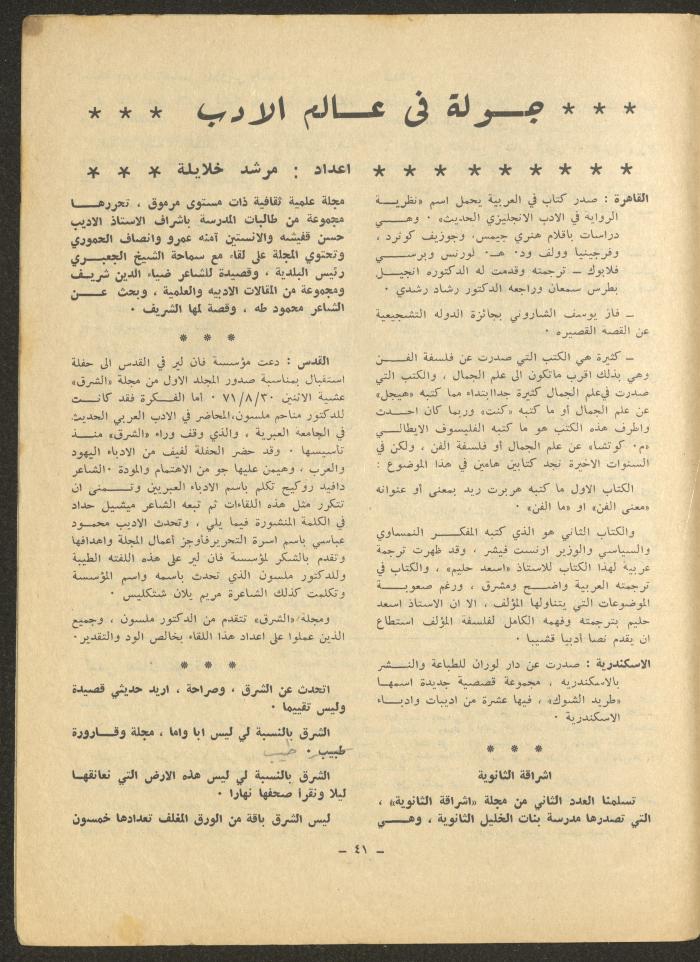 * * * جـــولة في عـــالم الادب * * *
* * * * * * * * * اعداد : مرشد خلايلة * * *
القاهرة : صدر كتاب في العربية يحمل اسم «نظريـــة
الرواية في الادب الانجليزي الحديث» ٠ وهـــي
دراسات باقلام هنري جيمس، وجوزيف كونرد ،
وفرجينيا وولف ود٠ هـ٠ لورنس وبرســـي
فلابوك ــ ترجمته وقدمت له الدكتوره انجيـل
بطرس سمعان وراجعه الدكتور رشاد رشدي ٠
ــ فاز يوسف الشاروني بجائزة الدوله التشجيعية
عن القصه القصيره ٠
ــ كثيرة هي الكتب التي صدرت عن فلسفة الفـــن
وهي بذلك اقرب ماتكون الى علم الجمال ، والكتب التي
صدرت فيعلم الجمال كثيرة جداابتداء مما كتبه «هيجل»
عن علم الجمال أو ما كتبه «كنت» وربما كان احـــدث
واطرف هذه الكتب هو ما كتبه الفليسوف الايطالـــي
«م٠ كوتشا» عن علم الجمال أو فلسفة الفن ، ولكن في
السنوات الاخيرة نجد كتابين هامين في هذا الموضوع :
الكتاب الاول ما كتبه هربرت ريد بمعنى أو عنوانه
«معنى الفن» او «ما الفن» ٠
والكتاب الثاني هو الذي كتبه المفكـــر النمساوي
والسياسي والوزير ارنست فيشر ، وقد ظهرت ترجمة
عربية لهذا الكتاب للاستاذ «اسعد حليم» ، والكتاب في
ترجمته العربية واضـــح ومشرق ، ورغم صعوبـــة
الموضوعات التي يتناولها المؤلف ، الا ان الاستاذ اسعد
حليم بترجمته وفهمه الكامل لفلسفة المؤلف استطاع
ان يقدم نصا أدبيا قشيبا ٠
الاسكندرية : صدرت عن دار لوران للطباعة والنـــشر
بالاسكندريه ، مجموعة قصصية جديدة اسمهـا
«طريد الشوك» ، فيها عشرة من اديبات وادبـاء
الاسكندرية ٠
* * *
اشراقة الثانوية
تسلمنا العدد الثاني من مجلة «اشراقة الثانوية» ،
التي تصدرها مدرسة بنات الخليل الثانوية ، وهـــي
مجلة علمية ثقافية ذات مستوى مرموق ، تحررهـــا
مجموعة من طالبات المدرسة باشراف الاستاذ الاديب
حسن قفيشه والانستين آمنه عمرو وانصاف الحموري
وتحتوي المجلة على لقاء مع سماحة الشيخ الجعبـــري
رئيس البلدية ، وقصيدة للشاعر ضياء الدين شريـف
ومجموعة من المقالات الادبيه والعلمية ، وبحث عـــن
الشاعر محمود طه ، وقصة لمها الشريف ٠
* * *
القدس : دعت مؤسسة فان لير في القدس الى حفلة
استقبال بمناسبة صدور المجلد الاول من مجلة «الشرق»
عشية الاثنين ٧١/٨/٣٠ ٠ اما الفـــكرة فقد كانـــت
للدكتور مناحم ملسون،المحاضر في الادب العربي الحديث
في الجامعة العبرية ، والذي وقف وراء «الشرق» منـــذ
تأسيسها ٠ وقد حضر الحفلة لفيف من الادباء اليهود
والعرب ، وهيمن عليها جو من الاهتمام والمودة ٠الشاعر
دافيد روكيح تكلم باسم الادباء العبريين وتـــمنى ان
تتكرر مثل هذه اللقاءات ثم تبعه الشاعر ميشيل حداد
في الكلمة المنشورة فيما يلي ، وتحدث الاديب محمـود
عباسي باسم اسرة التحريرفأوجز أعمال المجلة واهدافها
وتقدم بالشكر لمؤسسة فان لير على هذه اللفته الطيبة
وللدكتور ملسون الذي تحدث باسمه واسم المؤسسة
وتكلمت كذلك الشاعرة مريم يلان شتكليس ٠
ومجلة «الشرق» تتقدم من الدكتور ملسون ، وجميع
الذين عملوا على اعداد هذا اللقاء بخالص الود والتقدير٠
* * *
اتحدث عن الشرق ، وصراحة ، اريد حديثي قصيدة
وليس تقييما ٠
الشرق بالنسبة لي ليس ابا واما ، مجلة وقـــارورة
طبيب ٠ طيب
الشرق بالنسبة لي ليس هذه الارض التي نعانقهـا
ليلا ونقرأ صحفها نهارا ٠
ليس الشرق باقة من الورق المغلف تعدادها خمسون
ــ ٤١ ــ